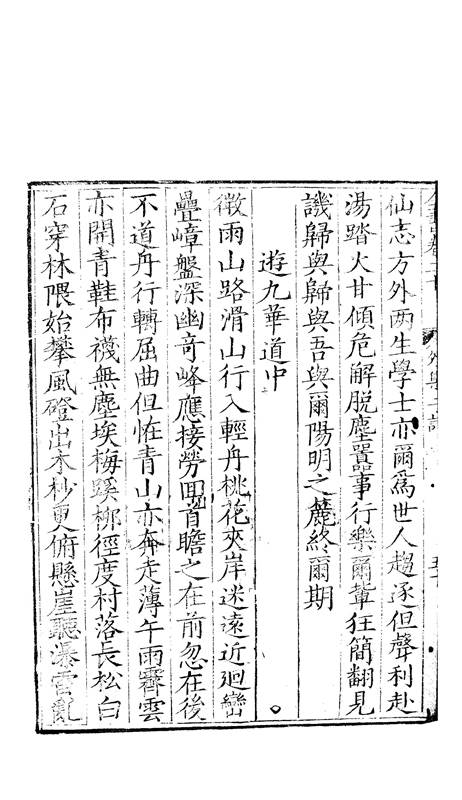 仙志方外两生學士亦爾爲世人趨逐但聲利赴
湯踏火甘傾危解脫塵囂事行樂爾輩狂簡翻見
譏歸與歸與吾與爾陽明之麓終爾期
遊九華道中
微雨山路滑山行入輕舟桃花夾岸迷遠近廻巒
疊嶂盤深幽竒峰應接勞回首瞻之在前忽在後
不道舟行轉屈曲但恠青山亦奔走薄午雨霽雲
亦開青鞋布襪無塵埃梅蹊栁徑度村落長松白
石穿林隈始攀風磴出木杪更俯懸崖聽瀑雷亂